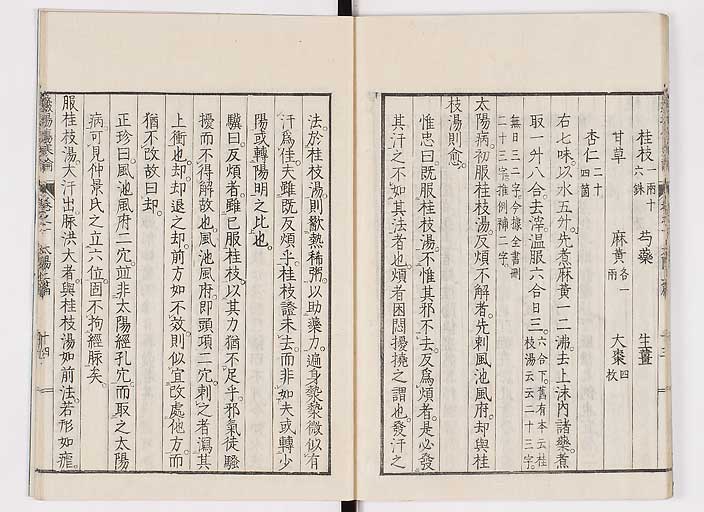 桂枝 一兩十六銖 芍藥 生薑
甘草 麻黃 各一兩 大棗 四枚
杏仁 二十四箇
右七味以水五升先煮麻黃一二沸去上沫內諸藥煮
取一升八合去滓溫服六合日三 六合下舊有本云桂枝湯云云二十三字
無日三二字今據全書刪二十三字推例補二字
太陽病初服桂枝湯反煩不解者先刺風池風府却與桂
枝湯則愈
惟忠曰既服桂枝湯不惟其邪不去反爲煩者是必發
其汗之不如其法者也煩者困悶擾撓之謂也發汗之
法於桂枝湯則歠熱稀粥以助藥力遍身漐漐微似有
汗爲佳夫雖既反煩乎桂枝證未去而非如夫或轉少
陽或轉陽明之比也
驥曰反煩者雖已服桂枝以其力猶不足乎邪氣徒騷
擾而不得解故也風池風府即頭項二穴刺之者瀉其
上衝也却却退之却前方如不效則似宜改處他方而
猶不改故曰却
正珍曰風池風府二穴竝非太陽經孔穴而取之太陽
病可見仲景氏之立六位固不拘經脉矣
服桂枝湯大汗出脉洪大者與桂枝湯如前法若形如瘧